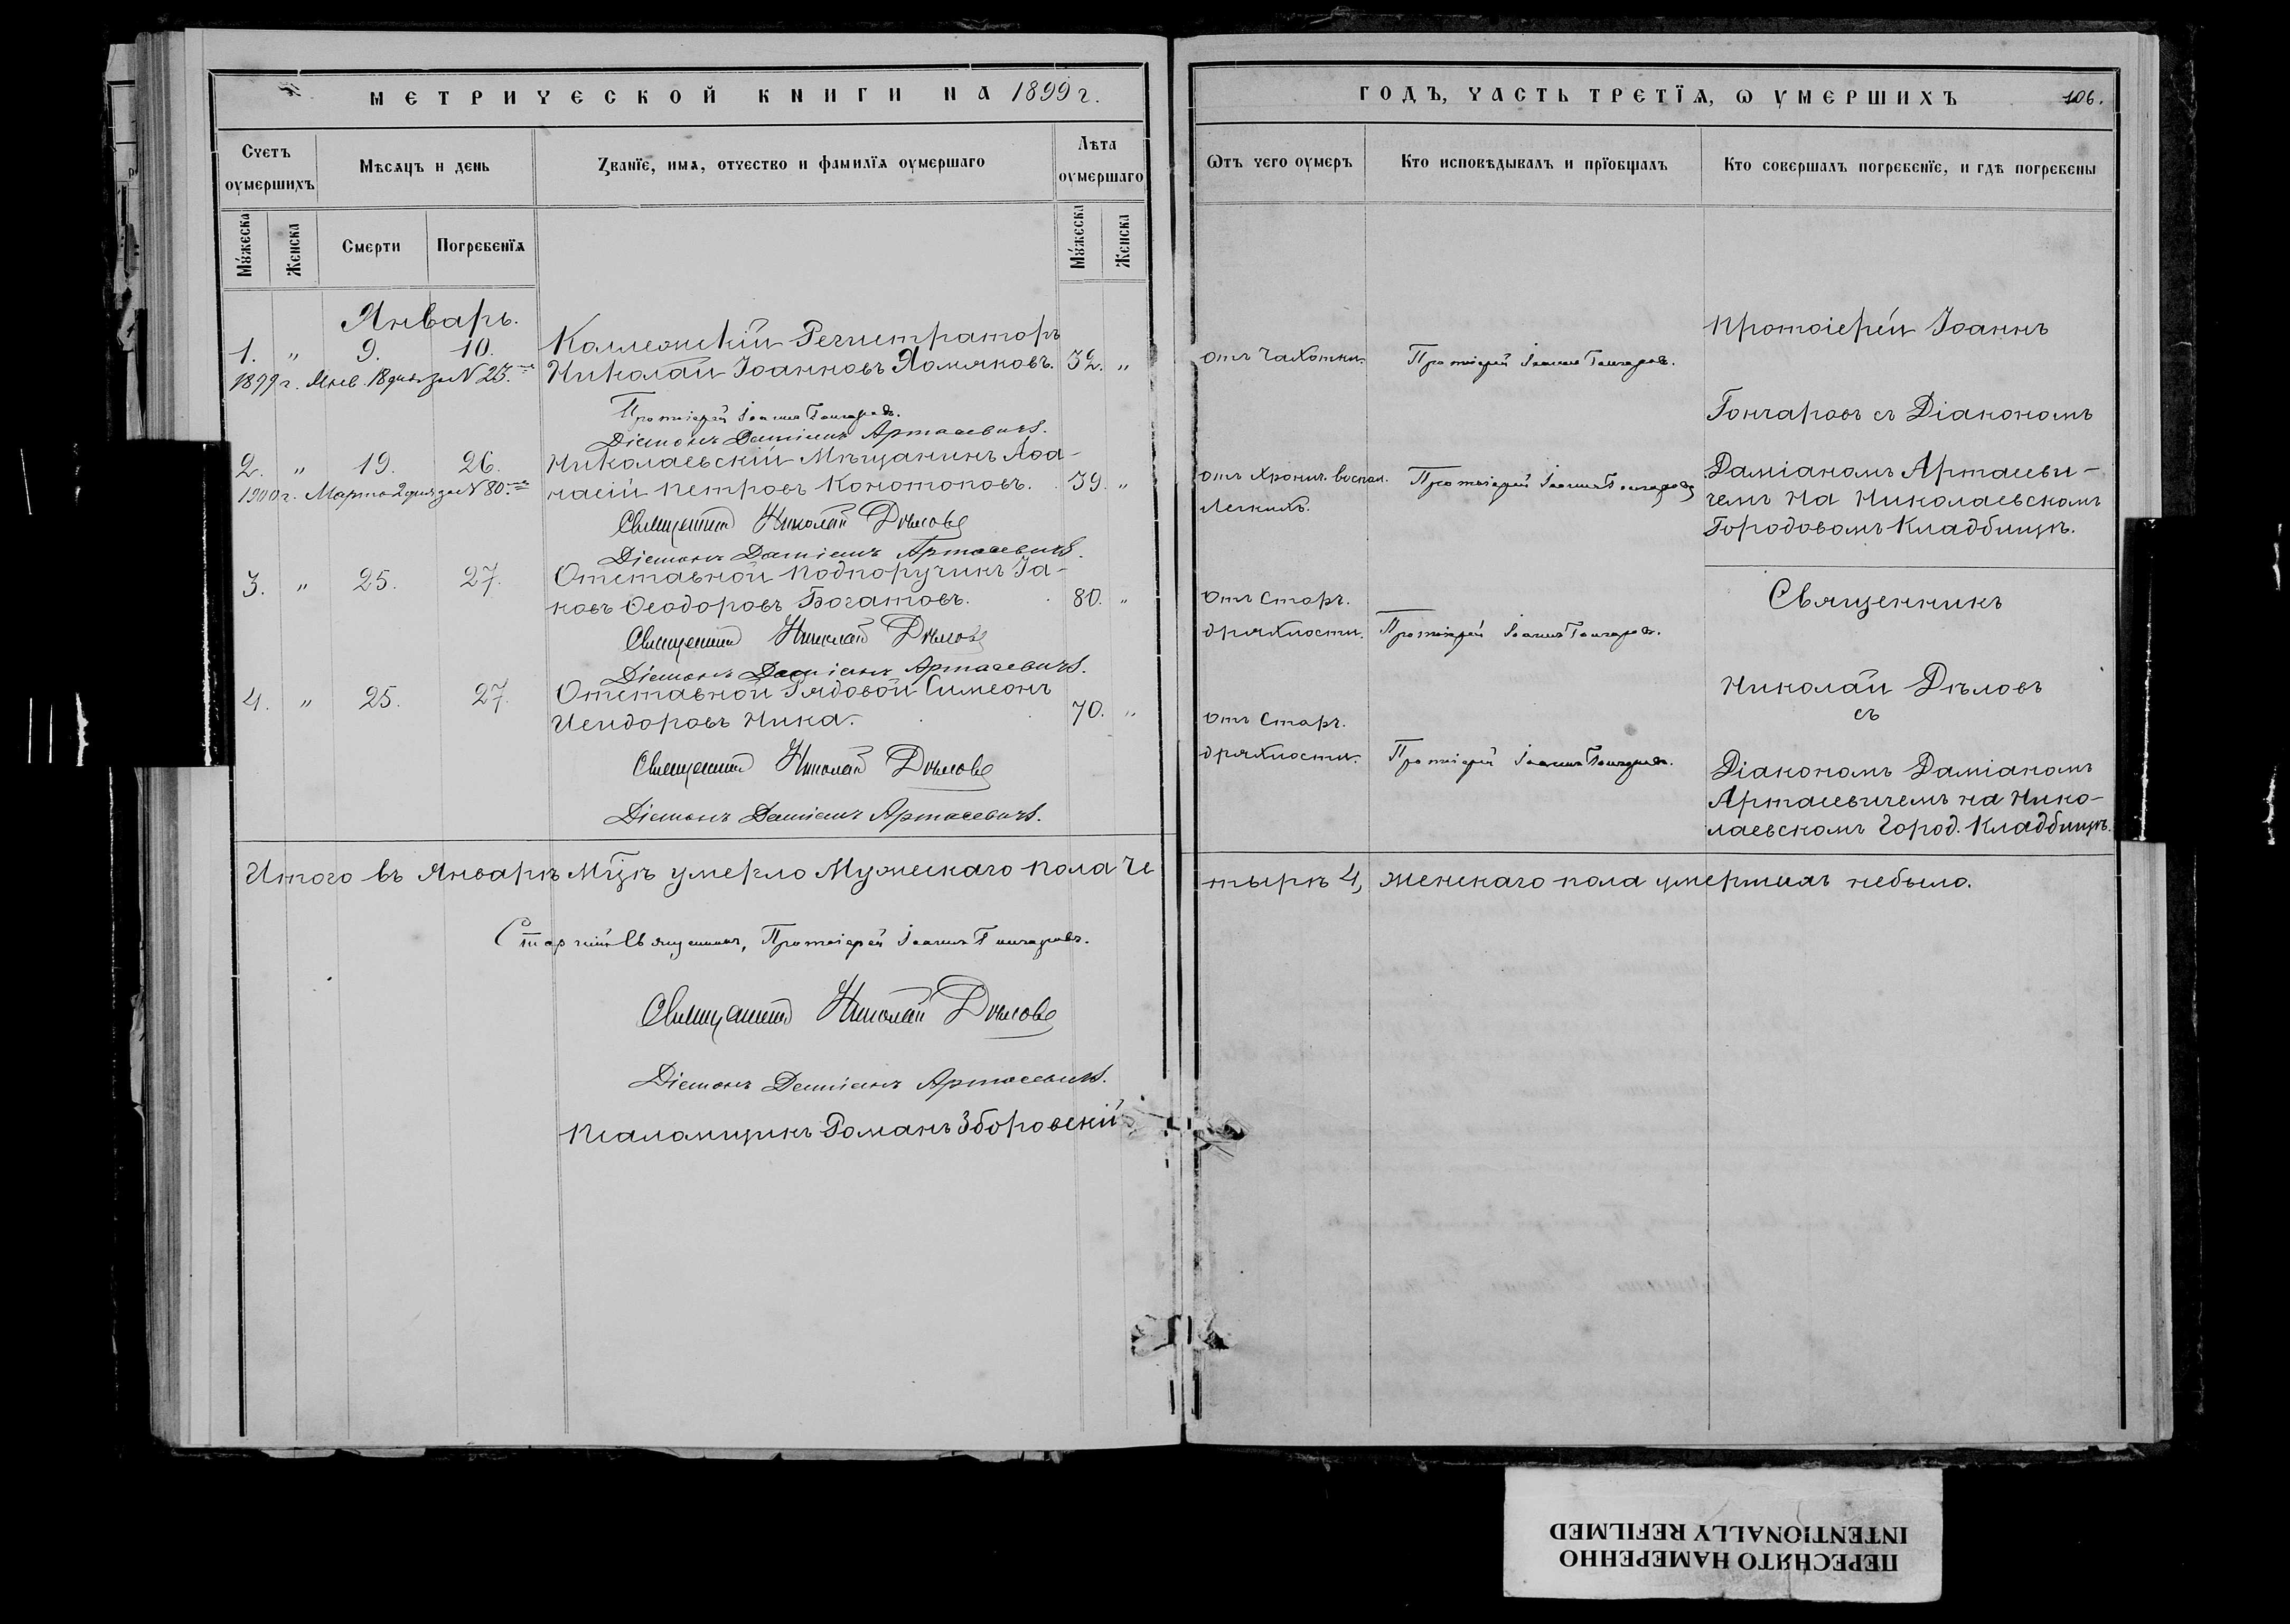 МЕТРИЧЕСКОЙ КНИГИ НА 1899 г.
Счетъ оумершихъ
Мѣсяцъ и день
Званїе, имя, отчество и фамилїя оумершаго
Лѣта оумершаго
Мꙋжеска
Женска
Смерти
Погребенїя
Мꙋжеска
Женска
Январь.
1. " 9. 10. Коллежскій Регистраторъ
1899 г. Янв. 18 дня за № 23. Николай Іоанновъ Хомяковъ. 32. "
Протоіерей Іоаннъ Гончаровъ.
Діаконъ Даміанъ Артасевичъ.
2. " 19. 26. Николаевскій Мѣщанинъ Аѳа-
1900 г. Марта 2 дня за № 80. насій Петровъ Конотоповъ. 39. "
Священникъ Николай Дѣловъ
Діаконъ Даміанъ Артасевичъ.
3. " 25. 27. Отставной Подпоручикъ Іа-
ковъ Ѳеодоровъ Богатовъ. 80. "
Священникъ Николай Дѣловъ
Діаконъ Даміанъ Артасевичъ.
4. " 25. 27. Отставной Рядовой Симеонъ
Исидоровъ Ника. 70. "
Священникъ Николай Дѣловъ
Діаконъ Даміанъ Артасевичъ.
Итого въ Январѣ Мцѣ умерло Мужескаго пола че
Старшій Священникъ, Протоіерей Іоаннъ Гончаровъ.
Священникъ Николай Дѣловъ
Діаконъ Даміанъ Артасевичъ.
Псаломщикъ Романъ Зборовскій
ГОДЪ, ЧАСТЬ ТРЕТЇЯ, Ѡ УМЕРШИХЪ
106.
Ѿтъ чего оумеръ
Кто исповѣдывалъ и прїобщалъ
Кто совершалъ погребенїе, и гдѣ погребены
Протоіерей Іоаннъ
отъ Чахотки. Протоіерей Іоаннъ Гончаровъ.
Гончаровъ съ Діакономъ
отъ Хронич. воспал. Протоіерей Іоаннъ Гончаровъ
Легкихъ.
Даміаномъ Артасеви-
чемъ на Николаевскомъ
Городовомъ Кладбищѣ.
отъ Стар.
дряхлости. Протоіерей Іоаннъ Гончаровъ.
Священникъ
Николай Дѣловъ
съ
отъ Стар.
дряхлости. Протоіерей Іоаннъ Гончаровъ.
Діакономъ Даміаномъ
Артасевичемъ на Нико-
лаевскомъ Город. Кладбищѣ.
тыре 4, женскаго пола умершихъ небыло.
ПЕРЕСНЯТО НАМЕРЕННО
INTENTIONALLY REFILMED